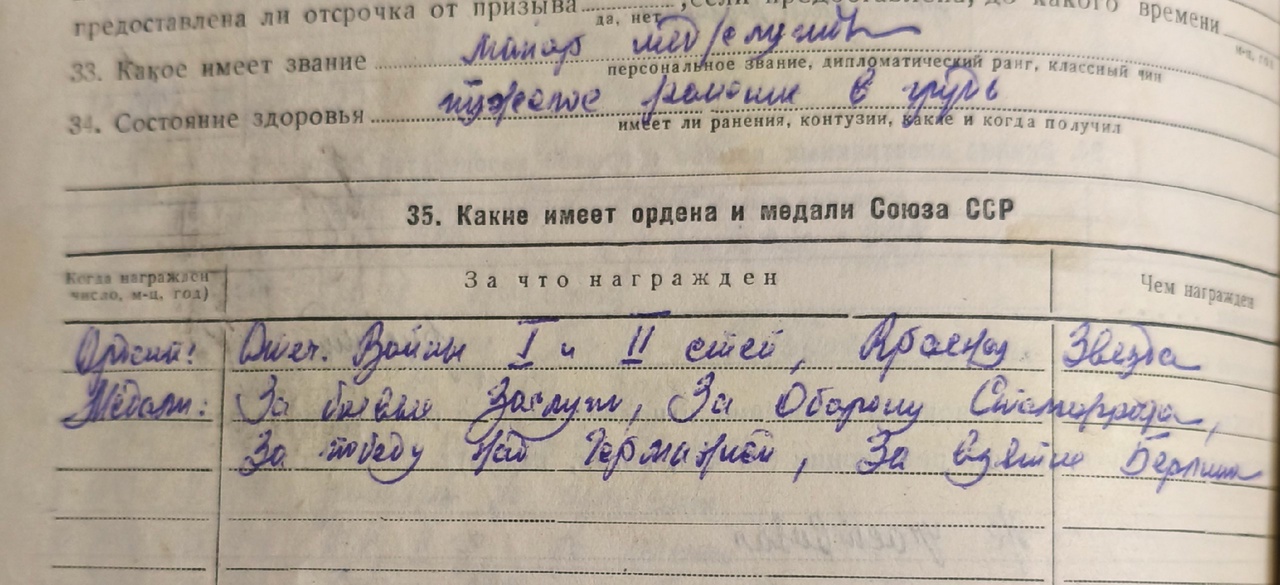 предоставлена ли отсрочка от призыва , если предоставлена, до какого времени
да, нет
33. Какое имеет звание майор медслужбы
персональное звание, дипломатический ранг, классный чин
34. Состояние здоровья тяжелое ранение в грудь
имеет ли ранения, контузии, какие и когда получил
35. Какие имеет ордена и медали Союза ССР
Когда награжден число, м-ц, год) За что награжден Чем награжден
Ордена: Отеч. Войны I и II степ, Красная Звезда
Медали: За боевые Заслуги, За Оборону Сталинграда,
За победу над Германией, За взятие Берлина